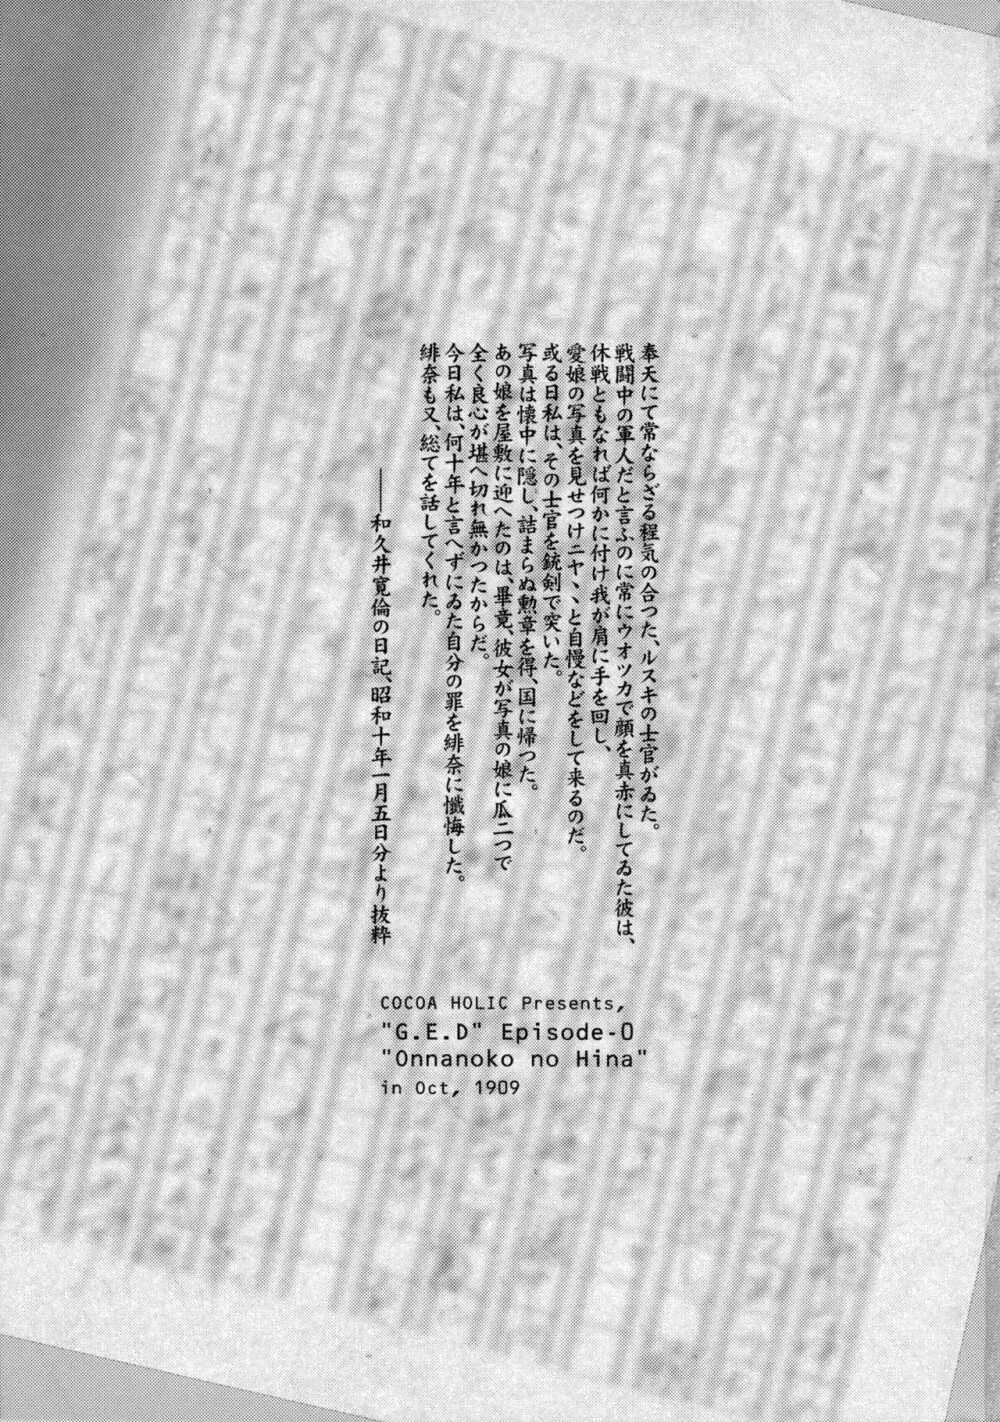 奉天にて常ならざる程気の合つた、ルスキの士官がゐた。
戦闘中の軍人だと言ふのに常にウオツカで顔を真赤にしてゐた彼は、
休戦ともなれば何かに付け我が肩に手を回し、
愛娘の写真を見せつけニヤヽヽと自慢などをして来るのだ。
或る日私は、その士官を銃剣で突いた。
写真は懐中に隠し、詰まらぬ勲章を得、国に帰つた。
あの娘を屋敷に迎へたのは、畢竟、彼女が写真の娘に瓜二つで
全く良心が堪へ切れ無かつたからだ。
今日私は、何十年と言へずにゐた自分の罪を緋奈に懺悔した。
緋奈も又、総てを話してくれた。
――和久井寛倫の日記、昭和十年一月五日分より抜粋
COCOA HOLIC Presents,
"G.E.D" Episode-0
"Onnanoko no Hina"
in Oct, 1909